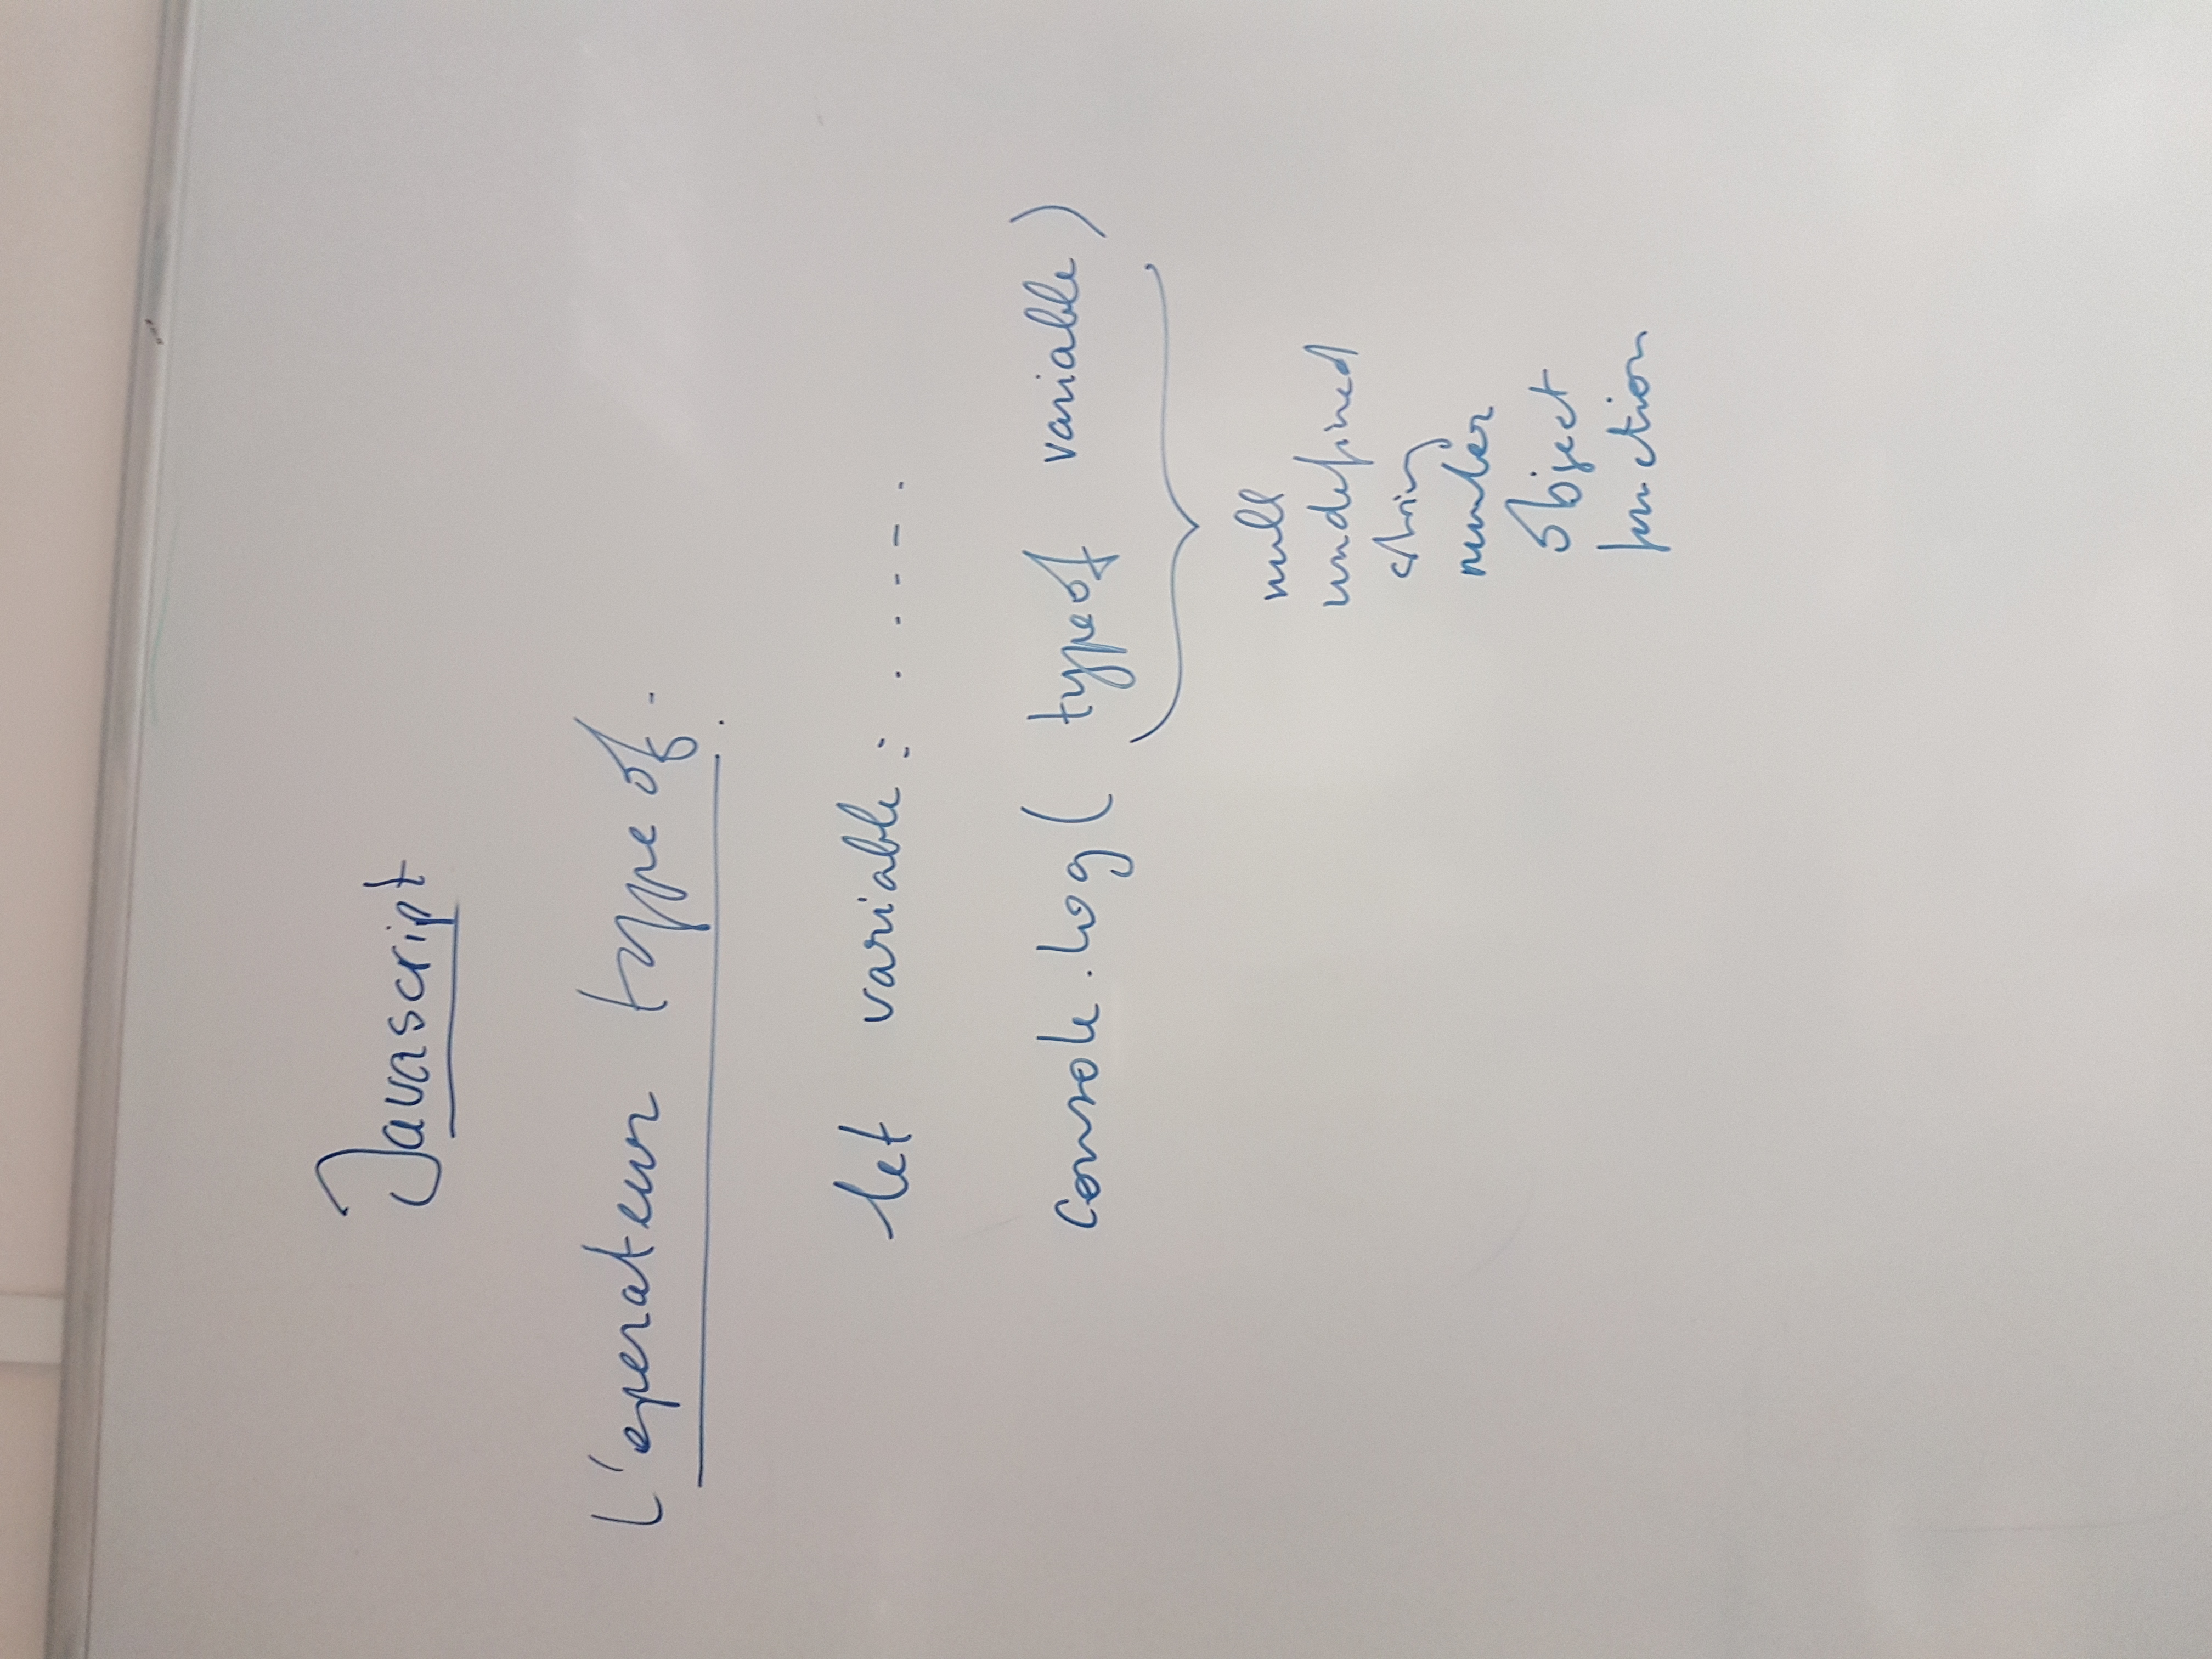 Javascript
L'operateur typeof.
let variable = . . - - - .
console.log( typeof variable )
null
undefined
string
number
object
function